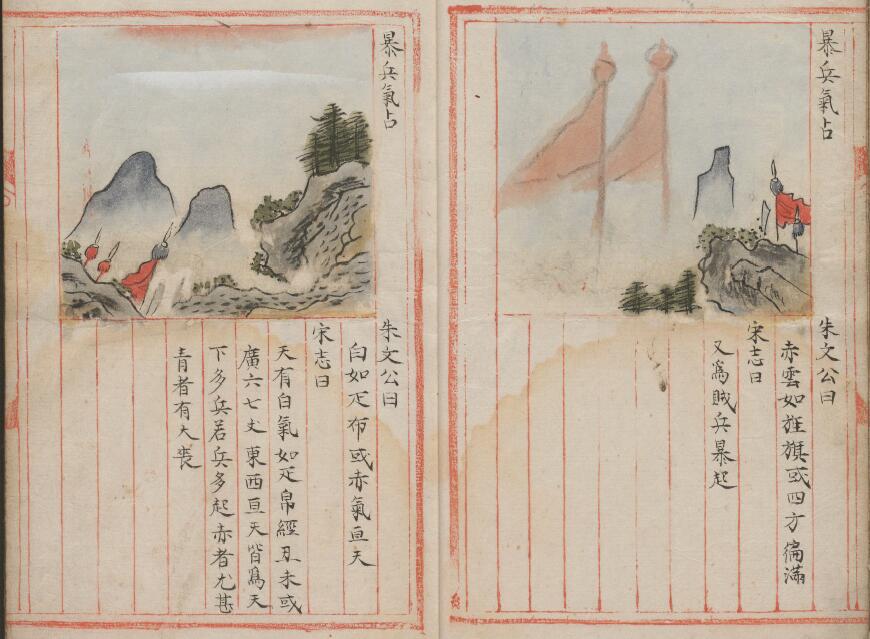 暴兵氣占
朱文公曰
赤雲如旌旗或四方徧滿
宋志曰
又為賊兵暴起
暴兵氣占
朱文公曰
白如疋布或赤氣亘天
宋志曰
天有白氣如疋帛經丑未或
廣六七丈東西亘天皆為天
下多兵若兵多起赤者尤甚
青者有大喪